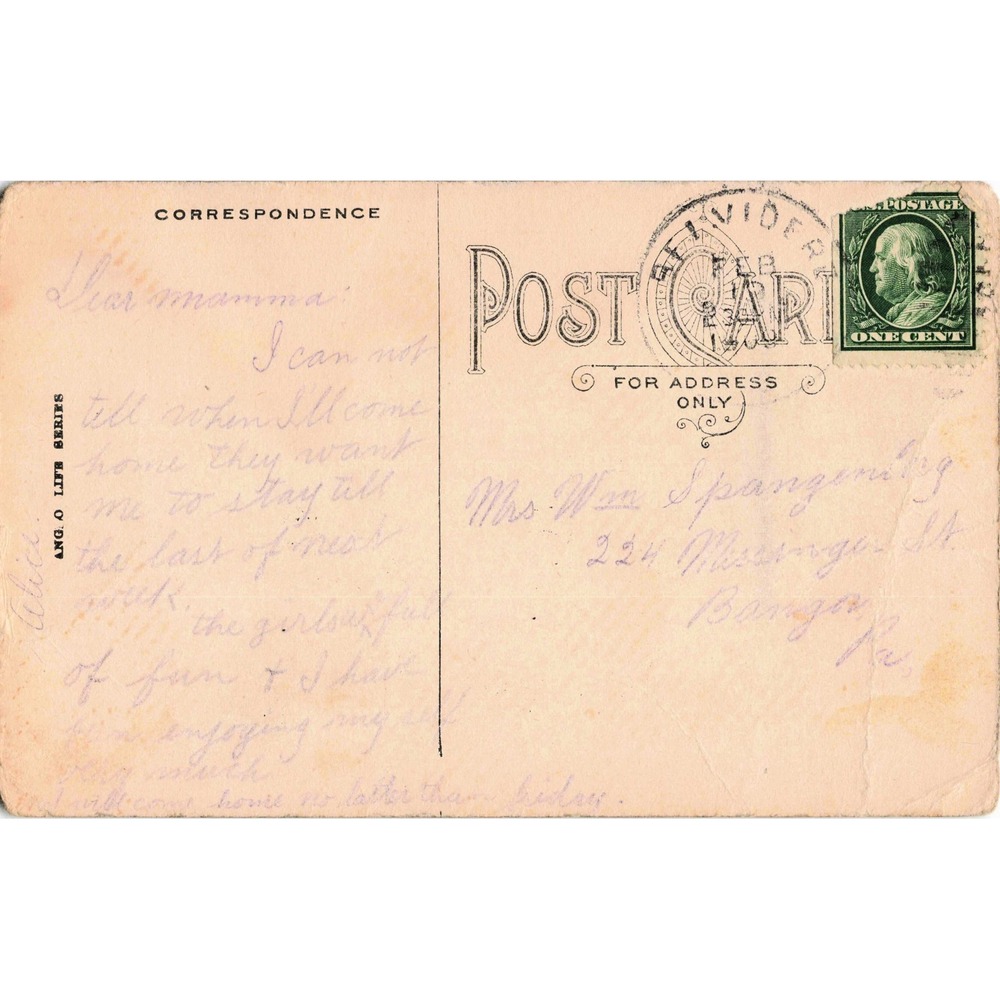 CORRESPONDENCE
Dear mamma:
I can not
tell when Ill come
home they want
me to stay till
the last of next
week.
the girls full
of fun & I have
ben enjoying my self
very much
I will come home no later than
Alice
ANGLO LIFE SERIES
POST CARD
FOR ADDRESS
ONLY
BELVIDER
FEB
U.S. POSTAGE
ONE CENT
Mrs Wm Spangenberg
224 Messinger St.
Bangor
Pa,